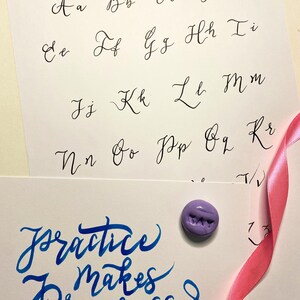 Aa Bb
Ee Ff Gg Hh Ii
Jj Kk Ll Mm
Nn Oo Pp Qq Rr
practice
makes